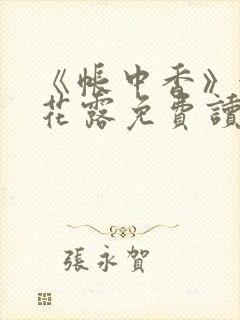 《帳中香》
花露免費讀
張永賀